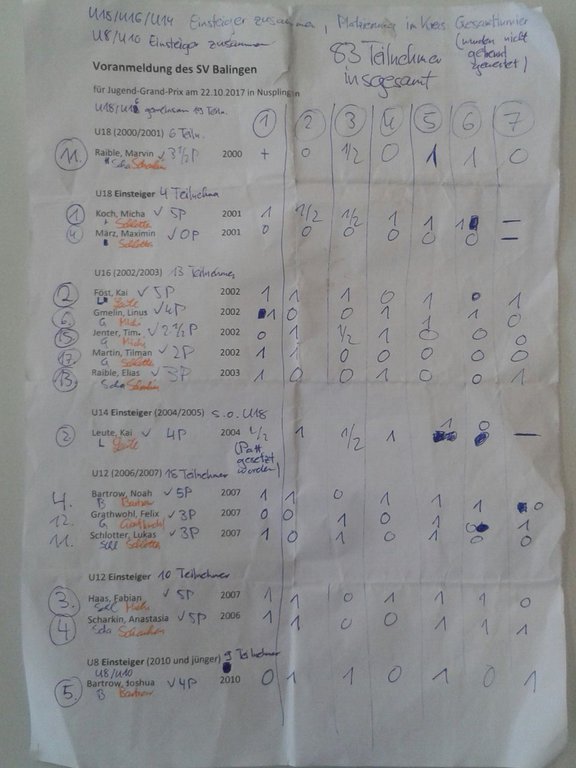 U18/U16/U14 Einsteiger zusammen, Platzierung im Kreis Gesamtturnier
U8/U10 Einsteiger zusammen
(wurden nicht
getrennt
gewertet)
83 Teilnehmer
insgesamt
Voranmeldung des SV Balingen
für Jugend-Grand-Prix am 22.10.2017 in Nusplingen
U18/U16 gemeinsam 19 Teiln.
1 2 3 4 5 6 7
U18 (2000/2001) 6 Teiln.
11. Raible, Marvin ✓ 3 1/2 P 2000 + 0 1/2 0 1 1 0
U18 Einsteiger 4 Teilnehmer
1 Koch, Micha ✓ 5P 2001 1 1/2 1/2 1 1 1 —
Schlotter
4. März, Maximin ✓ 0P 2001 0 0 0 0 0 0 —
Schlotter
U16 (2002/2003) 13 Teilnehmer
2. Föst, Kai ✓ 5P 2002 1 1 1 0 1 0 1
L Leute
6. Gmelin, Linus ✓ 4P 2002 1 0 0 1 1 1 0
G.
15. Jenter, Tim ✓ 2 1/2 P 2002 0 1 1/2 1 0 0 0
G.
17. Martin, Tilman ✓ 2P 2002 1 1 0 0 0 0 0
G Schlotter
13. Raible, Elias ✓ 3P 2003 1 0 0 1 0 0 1
Scha Scharkin
U14 Einsteiger (2004/2005) s.o. U18
2. Leute, Kai ✓ 4P 2004 1/2 1 1/2 1 1 0 —
L Leute
(Patt
gesetzt
worden)
U12 (2006/2007) 15 Teilnehmer
4. Bartrow, Noah ✓ 5P 2007 1 1 0 1 1 1 0
B Bartrow
12. Grathwohl, Felix ✓ 3P 2007 0 0 1 0 1 0 1
G. Grathwohl
11. Schlotter, Lukas ✓ 3P 2007 1 1 0 0 1 0 0
Schl Schlotter
U12 Einsteiger 10 Teilnehmer
3. Haas, Fabian ✓ 5P 2007 1 1 0 1 1 1 0
4 Scharkin, Anastasia ✓ 5P 2006 1 1 0 0 1 1 1
Scha Scharkin
U8 Einsteiger (2010 und jünger) 9 Teilnehmer
U8/U10
5. Bartrow, Joshua ✓ 4P 2010 0 1 1 0 1 0 1
B Bartrow